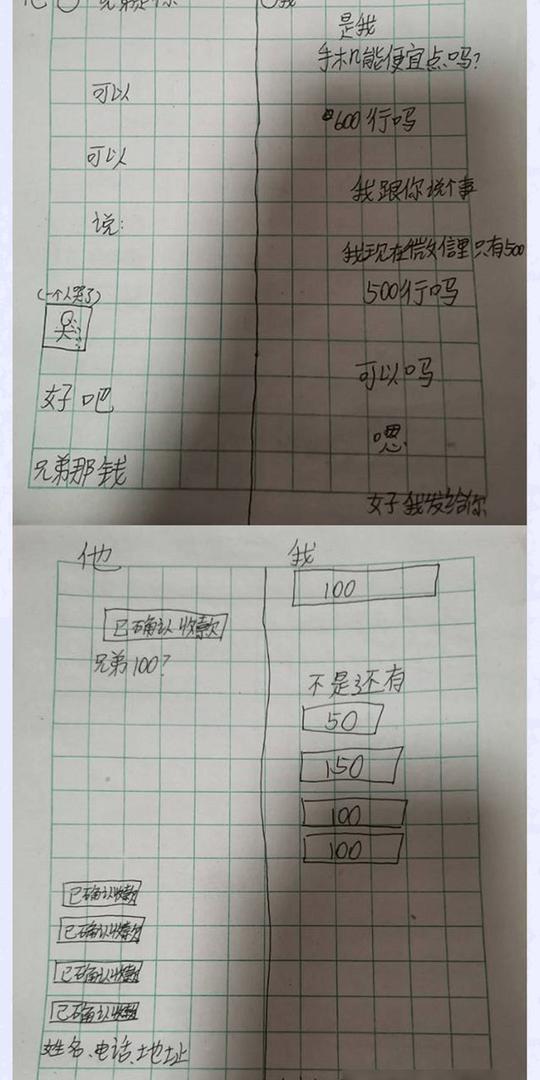 是我
手机能便宜点吗?
可以
600行吗
可以
我跟你说个事
说:
我现在微信里只有500
500行吗
(一个人哭了)
可以吗
好吧
嗯
兄弟那钱
好我发给你
他
我
100
已确认收款
兄弟100?
不是还有
50
150
100
100
已确认收款
已确认收款
已确认收款
已确认收款
姓名、电话、地址